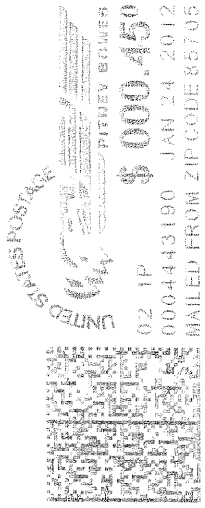 UNITED STATES POSTAGE
PITNEY BOWES
02 1P
$ 000.45⁰
0004443190 JAN 24 2012
MAILED FROM ZIP CODE 85705